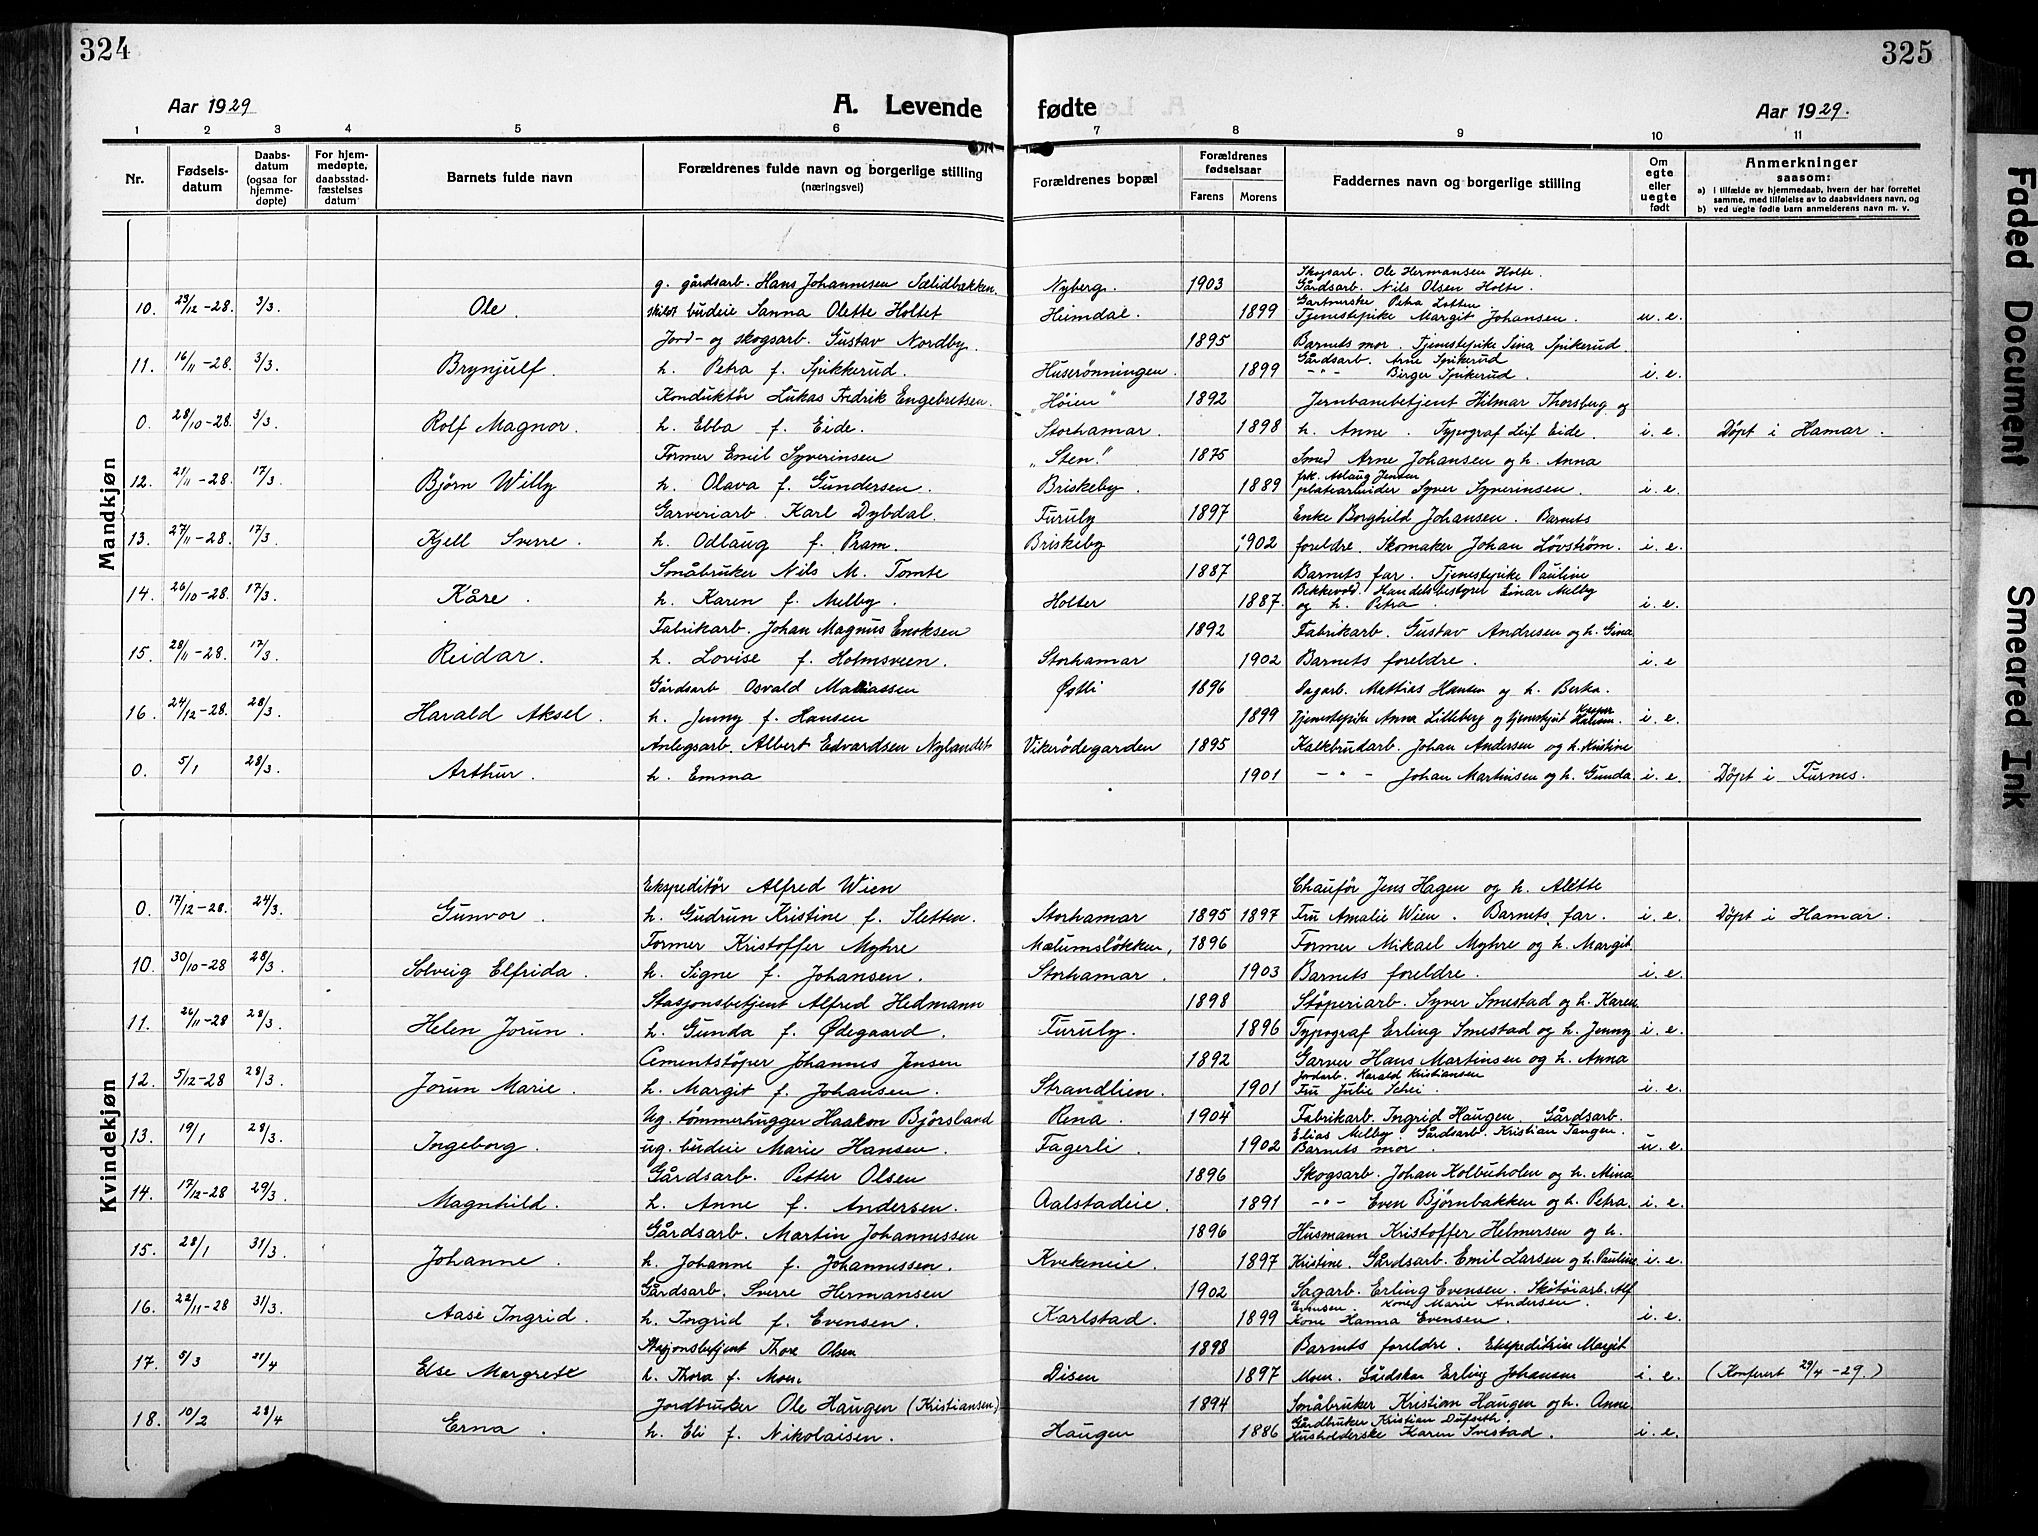 324
325
Faded Document
Smeared Ink
Aar 1929
A. Levende
fødte
Aar 1929.
1 2 3 4 5 6 7 8 9 10 11
Nr.
Fødsels-
datum
Daabs-
datum
(ogsaa for
hjemme-
døpte)
For hjem-
medøpte,
daabsstad-
fæstelses
datum
Barnets fulde navn
Forældrenes fulde navn og borgerlige stilling
(næringsvei)
Forældrenes bopæl
Forældrenes
fødselsaar
Farens Morens
Faddernes navn og borgerlige stilling
Om
egte
eller
uegte
født
Anmerkninger
saasom:
a) i tilfælde av hjemmedaab, hvem der har forrettet
samme, med tilføielse av to daabsvidners navn, og
b) ved uegte fødte barn anmelderens navn m. v.
Mandkjøn
g. gårdsarb. Hans Johannesen Sælidbækken. Nyberg. 1903 Skogsarb. Ole Hermansen Holte.
Gårdsarb. Nils Olsen Holte.
10. 23/12-28. 3/3. Ole. skilst budeie Sanna Olette Holtet Heimdal. 1899 Gartnerske Petra Lotten
Tjenestepike Margit Johansen. u. e.
Jord- og skogsarb. Gustav Nordby. 1895 Barnets mor. Tjenestepike Lina Spikerud.
11. 16/11-28. 3/3. Brynjulf. h. Petra f. Spikkerud. Huserønningen. 1899 Gårdsarb. Arne Spikerud
-"- Birger Spikerud. i. e.
Konduktør Lukas Fredrik Engebretsen. "Høien" 1892 Jernbanebetjent Hilmar Thorsberg og
0. 28/10-28. 3/3. Rolf Magnor. h. Ebba f. Eide. Storhamar. 1898 h. Anne. Typograf Leif Eide. i. e. Døpt i Hamar.
Former Emil Syverinsen "Sten" 1875 Smed Arne Johansen og h. Anna
12. 21/11-28. 17/3. Bjørn Willy h. Olava f. Gundersen. Briskeby. 1889 frk. Aslaug Jensen
platearbeider Syver Syverinsen. i. e.
Garveriarb. Karl Dybdal. Furuly 1897 Enke Borghild Johansen. Barnets
13. 27/11-28. 17/3. Kjell Sverre. h. Odlaug f. Bram. Briskeby 1902 foreldre. Skomaker Johan Løvstrøm. i. e.
Småbruker Nils M. Tomte 1887 Barnets far. Tjenestepike Pauline
14. 26/10-28. 17/3. Kåre. h. Karen f. Melby. Holter 1887. Bekkevold. Handelsbestyrer Einar Melby
og h. Petra. i. e.
Fabrikarb. Johan Magnus Enoksen 1892 Fabrikarb. Gustav Andresen og h. Gina
15. 28/11-28. 17/3. Reidar. h. Lovise f. Holmsveen. Storhamar 1902 Barnets foreldre. i. e
Gårdsarb Osvald Matiassen Østli 1896 Sagarb. Mattias Hansen og h. Berta.
16. 24/12-28. 28/3. Harald Aksel. h. Jenny f. Hansen 1899 Tjenestepike Anna Lilleberg og tjenestejut Kasper
Hansen. i. e.
Anlegsarb. Albert Edvardsen Nylandet Vikerødegarden 1895 Kalkbrudarb. Johan Andersen og h. Kristine
0. 5/1 28/3. Arthur. h. Emma 1901 -"- Johan Martinsen og h. Gunda. i. e. Døpt i Furnes.
Kvindekjøn
Ekspeditør Alfred Wien Chaufør Jens Hagen og h. Alette
0. 17/12-28. 24/3. Gunvor. h. Gudrun Kristine f. Sletten. Storhamar 1895 1897 Fru Amalie Wien. Barnets far. i. e. Døpt i Hamar.
Former Kristoffer Myhre Mælumsløkken, 1896 Former Mikael Myhre og h. Margit
10. 30/10-28 28/3. Solveig Elfrida. h. Signe f. Johansen. Storhamar. 1903 Barnets foreldre. i. e.
Stasjonsbetjent Alfred Hedmann 1898 Støperiarb. Syver Smestad og h. Karen
11. 26/11-28 28/3. Helen Jorun. h. Gunda f. Ødegaard. Furuly. 1896 Typograf Erling Smestad og h. Jenny i. e.
Cementstøper Johannes Jensen 1892 Garver Hans Martinsen og h. Anna
12. 5/12-28 28/3. Jorun Marie. h. Margit f. Johansen. Strandlien. 1901 Jordarb. Harald Kristiansen
Fru Julie Schei i. e.
Ug. tømmerhugger Haakon Bjørsland Rena. 1904 Fabrikarb. Ingrid Haugen. Gårdsarb.
13. 19/1 28/3. Ingeborg. ug. budeie Marie Hansen. Fagerli. 1902 Elias Melby. Gårdsarb. Kristian Tangen.
Barnets mor. u. e.
Gårdsarb. Petter Olsen 1896 Skogsarb. Johan Kolbuholen og h. Mina
14. 17/12-28 29/3. Magnhild. h. Anne f. Andersen. Aalstadeie. 1891 -"- Even Bjørnbakken og h. Petra. i. e.
Gårdsarb. Martin Johannessen 1896 Husmann Kristoffer Helmersen og h.
15. 28/1 31/3. Johanne. h. Johanne f. Johannessen. Kvekeneie. 1897 Kristine. Gårdsarb. Emil Larsen og h. Pauline i. e.
Gårdsarb. Sverre Hermansen 1902 Sagarb. Erling Evensen. Skotøiarb. Alf
16. 22/11-28 31/3. Aase Ingrid. h. Ingrid f. Evensen. Karlstad. 1899 Evensen. Kone Marie Andersen.
Kone Hanna Evensen. i. e.
Stasjonsbetjent Thore Olsen 1898 Barnets foreldre. Ekspeditrise Margit
17. 5/3 21/4 Else Margrete h. Thora f. Moen Disen 1897 Moen. Erling Johansen i. e. (Konferert 29/4-29.)
Jordbruker Ole Haugen (Kristiansen) 1894 Småbruker Kristian Haugen og h. Anne
18. 10/2 28/4 Erna. h. Eli f. Nikolaisen. Haugen 1886 Gårdbruker Kristian Dufseth.
Husholderske Karen Svestad. i. e.